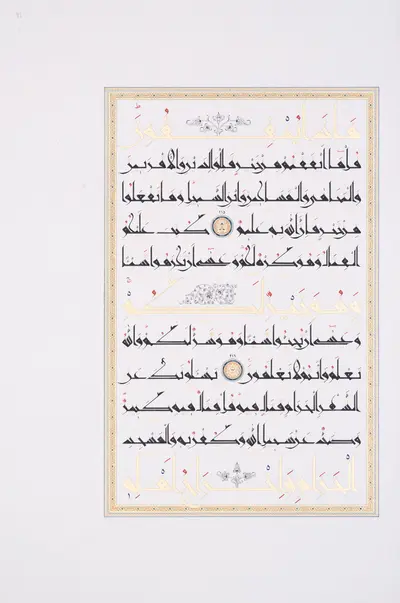 ماذا ينفقون
قل ما أنفقتم من خير فللوالدين والأقربين
واليتمى والمسكين وابن السبيل وما تفعلوا
من خير فإن الله به عليم ٢١٥ كتب عليكم
القتال وهو كره لكم وعسى أن تكرهوا شيئا
وهو خير لكم
وعسى أن تحبوا شيئا وهو شر لكم والله
يعلم وأنتم لا تعلمون ٢١٦ يسئلونك عن
الشهر الحرام قتال فيه قل قتال فيه كبير
وصد عن سبيل الله وكفر به والمسجد
الحرام وإخراج أهله